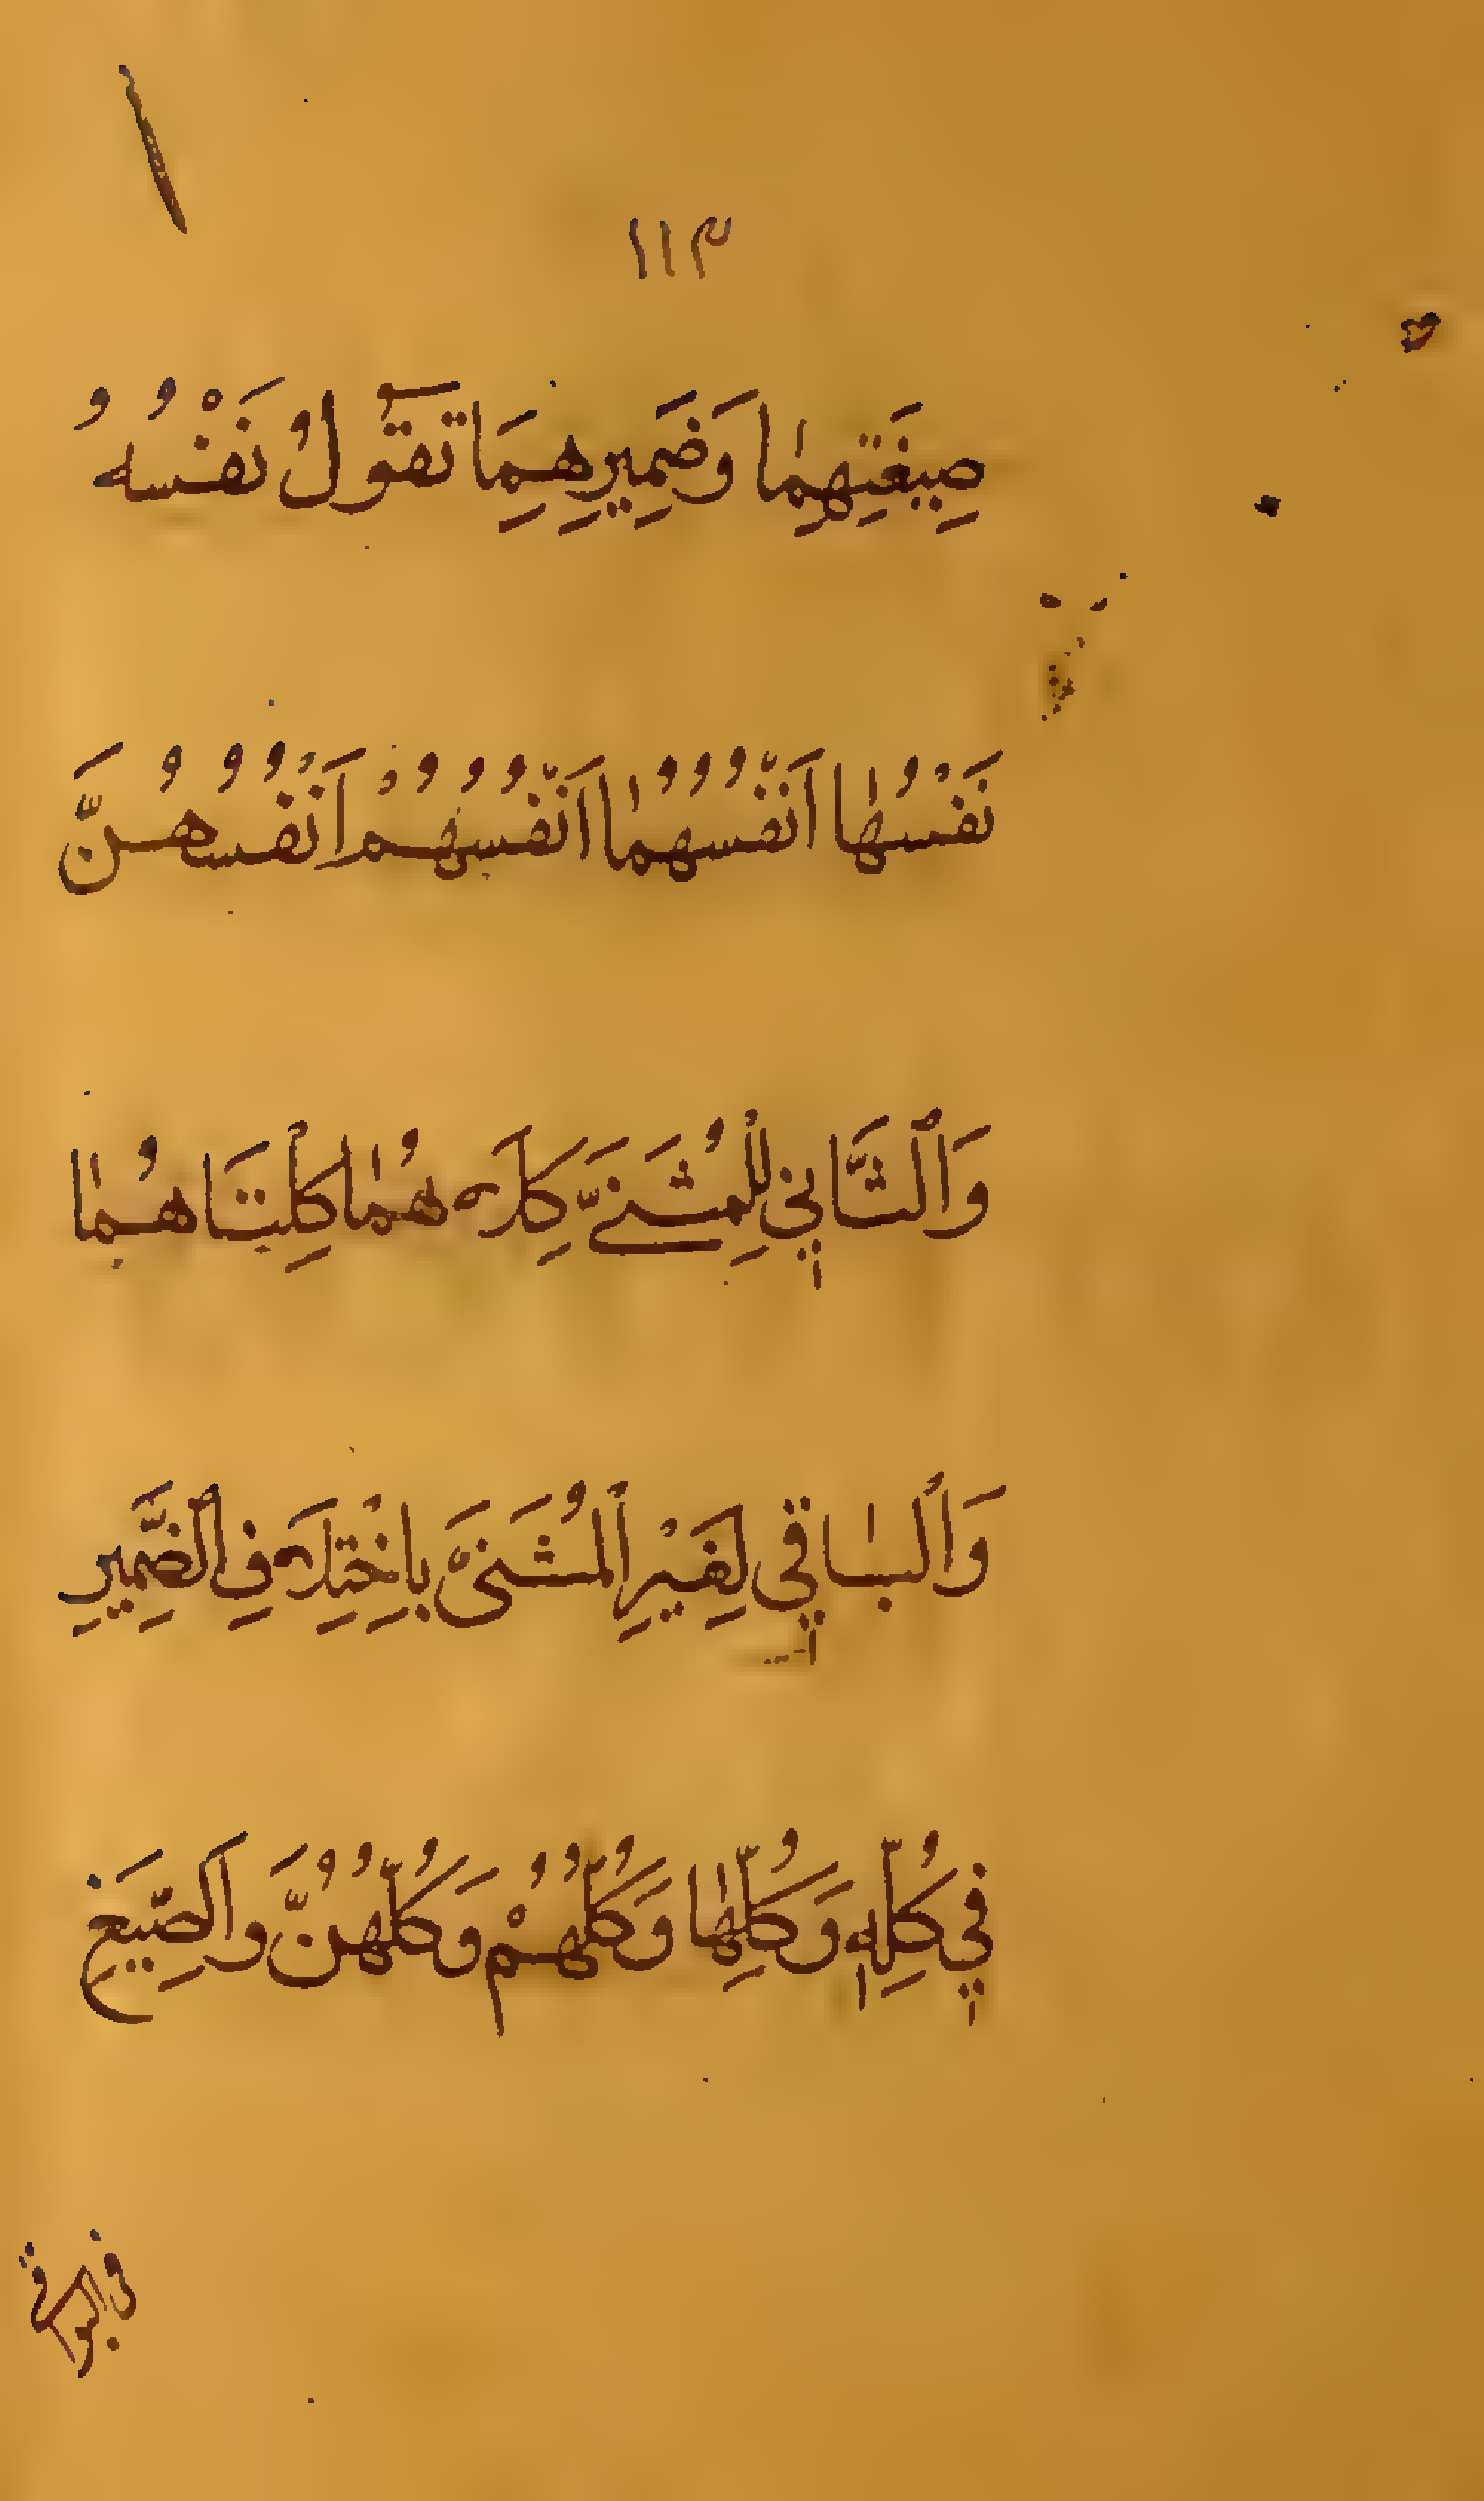 ١١٣
صِيغَتِهِمٰا وَضَمِيرِهِمَا تَقُولُ نَفْسُهُ
نَفْسُهٰا اَنْفُسُهُمٰا اَنْفُسُهُمْ اَنْفُسُهُنَّ
وَالثَّانِي لِلْمُثَنَّي كِلَاهُمٰا كِلْتَاهُمٰا
وَالْبٰاقِي لِغَيْرِ الْمُثَنَّى بِاخْتِلَافِ الضَّمِيرِ
فِي كُلِّهِ وَكُلِّهٰا وَكُلِّهُمْ وَكُلُّهُنَّ وَالصِّيَغِ
في البواقي